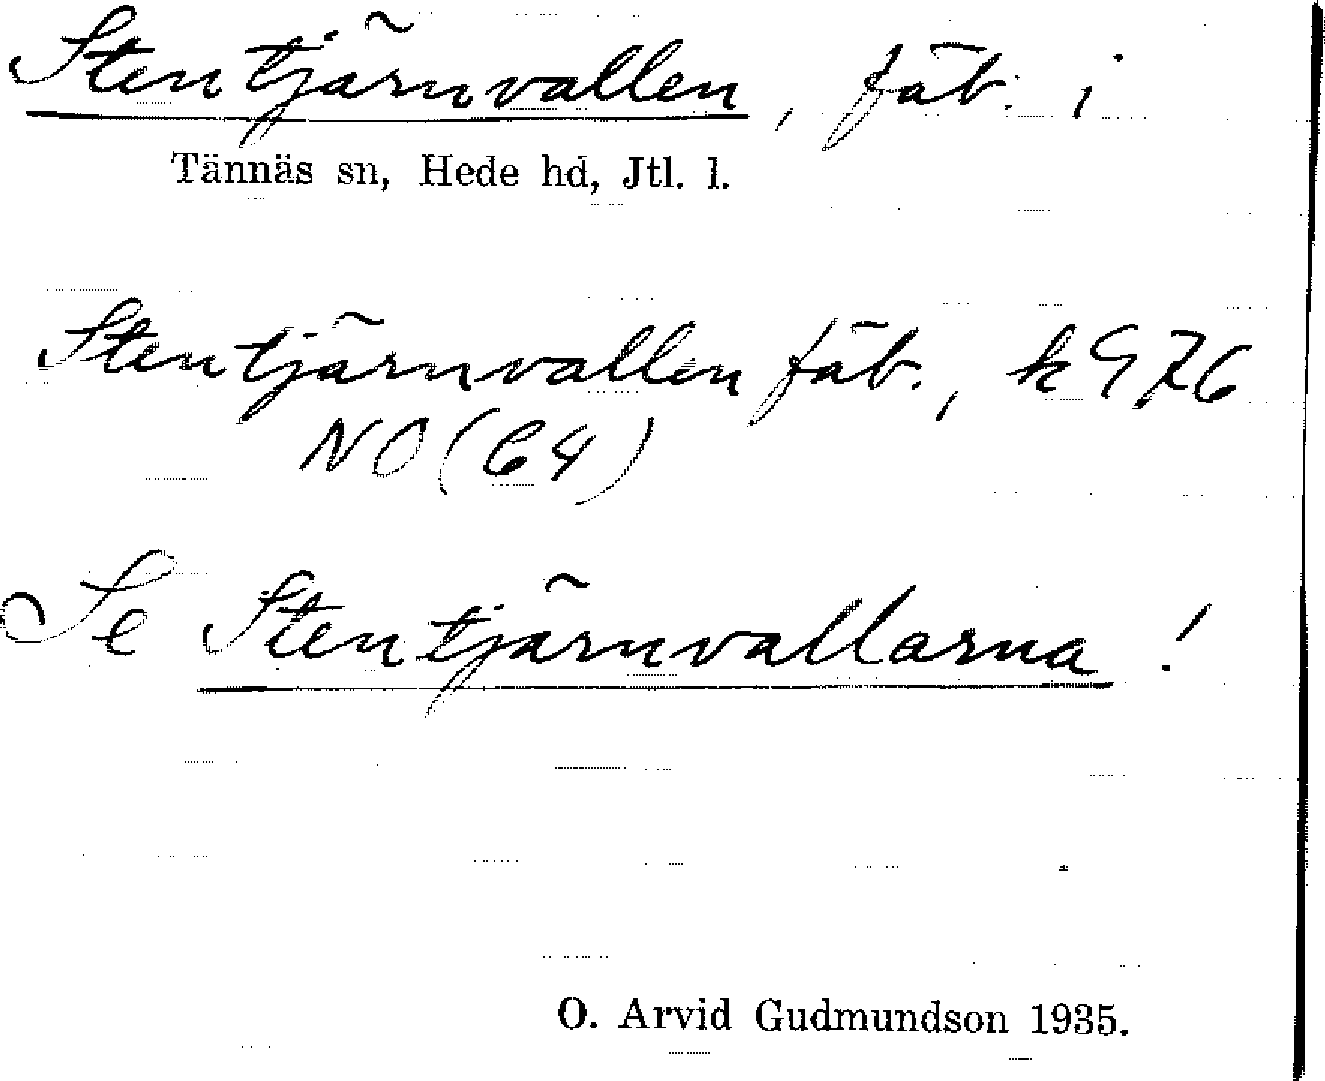 Stentjärnvallen, fäb. i
Tännäs sn, Hede hd, Jtl. l.
Stentjärnvallen fäb., k 976
NO (64)
Se Stentjärnvallarna!
O. Arvid Gudmundson 1935.